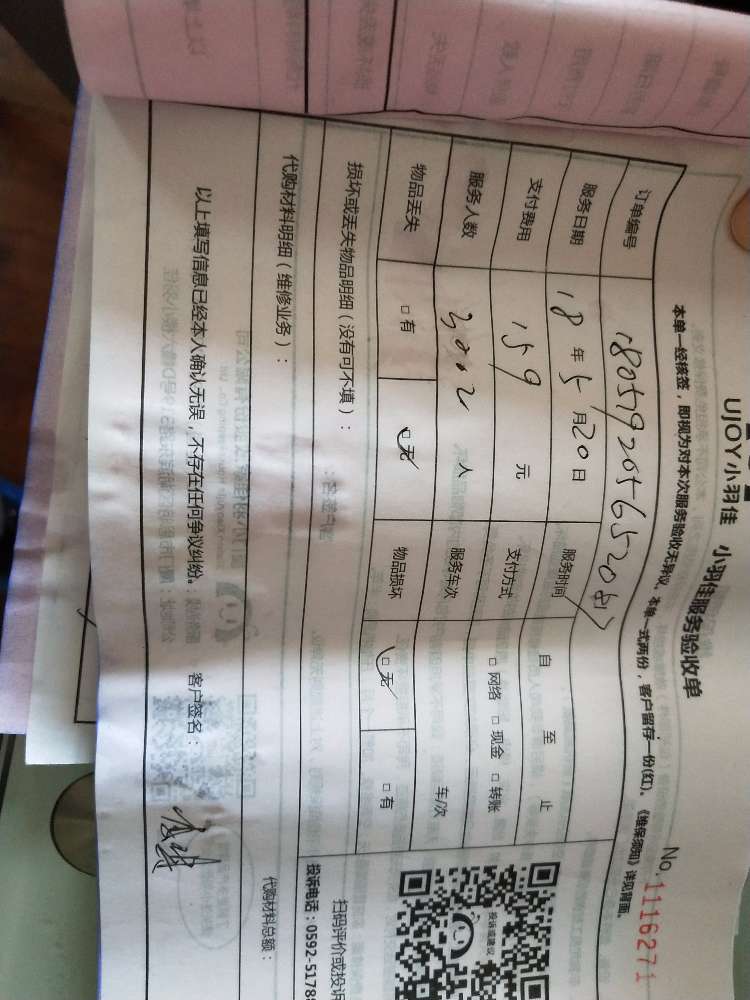 UJOY小羽佳 小羽佳服务验收单
No.1116271
本单一经核签，即视为对本次服务验收无异议，本单一式两份，客户留存一份(红)。《维保须知》详见背面。
订单编号
服务日期 18 年 5 月 20 日 服务时间 自 至 止
支付费用 159 元 支付方式 □ 网络 □ 现金 □ 转账
服务人数 人 服务车次 车/次
物品丢失 □ 有 □ 无 物品损坏 □ 无 □ 有
损坏或丢失物品明细（没有可不填）：
扫码评价或投诉
投诉电话：0592-5178
投诉或建议
代购材料明细（维修业务）：
代购材料总额：
以上填写信息已经本人确认无误，不存在任何争议纠纷。 客户签名：